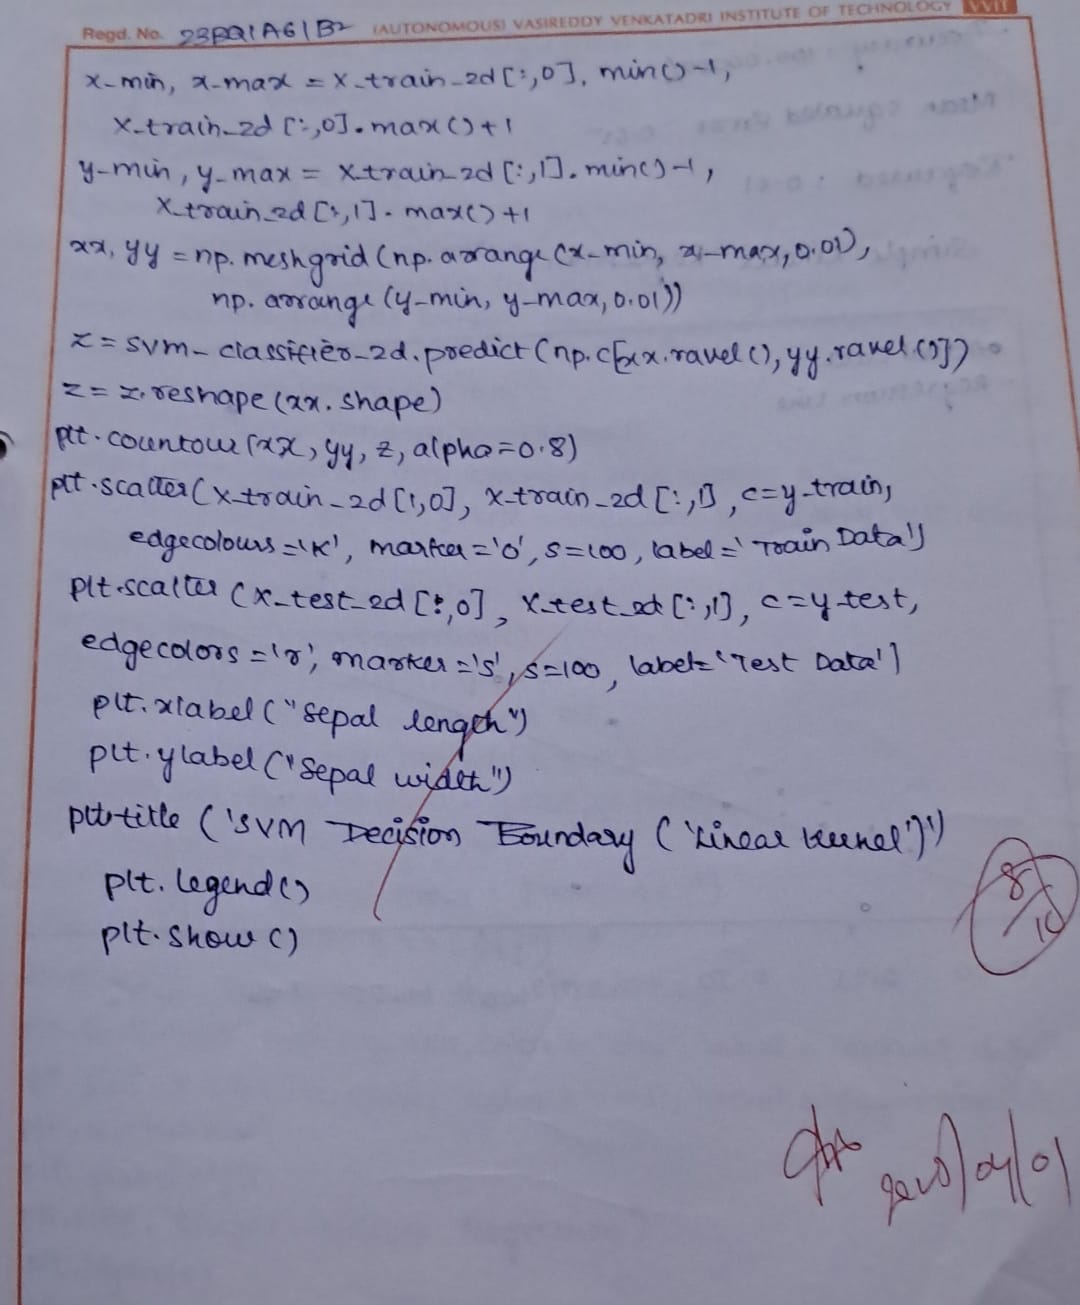 Regd. No. 23BQ1A61B2 (AUTONOMOUS) VASIREDDY VENKATADRI INSTITUTE OF TECHNOLOGY VVIT
x-min, x-max = x-train-2d[:,0], min()-1,
x-train-2d[:,0].max()+1
y-min, y-max = x-train-2d[:,1].min()-1,
x-train-2d[:,1].max()+1
xx, yy = np.meshgrid(np.arrange(x-min, x-max, 0.01),
np.arrange(y-min, y-max, 0.01))
z = svm-classifier-2d.predict(np.c[xx.ravel(), yy.ravel()])
z = z.reshape(xx.shape)
plt.countour(xx, yy, z, alpha=0.8)
plt.scatter(x-train-2d[:,0], x-train-2d[:,1], c=y-train,
edgecolours='K', marker='o', s=100, label='Train Data')
plt.scatter(x-test-2d[:,0], x-test-2d[:,1], c=y-test,
edgecolors='r', marker='s', s=100, label='Test Data')
plt.xlabel("Sepal length")
plt.ylabel("Sepal width")
plt.title('SVM Decision Boundary ('Linear kernel')')
plt.legend()
plt.show()
8/10